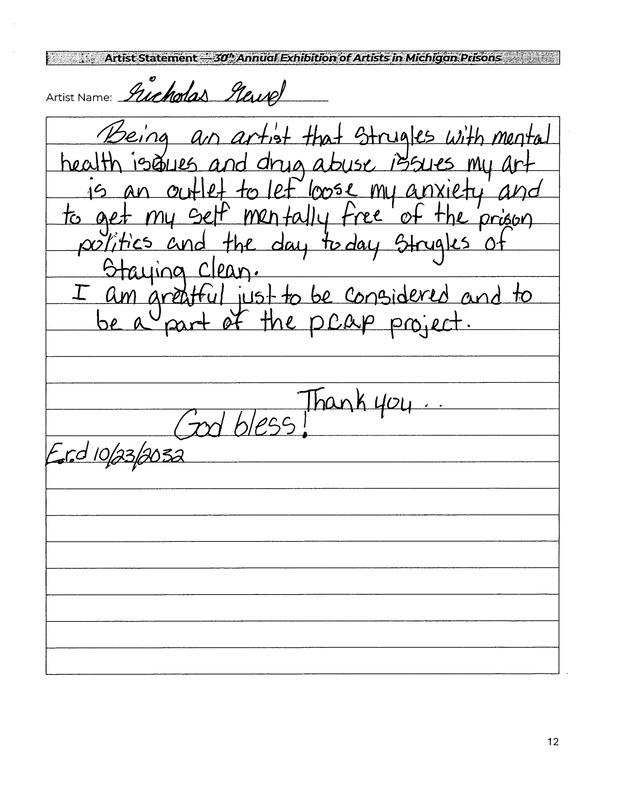 Artist Statement — 30th Annual Exhibition of Artists in Michigan Prisons
Artist Name: Nicholas
Being an artist that Strugles with mental
health issues and drug abuse issues my art
is an outlet to let loose my anxiety and
to get my self mentally free of the prison
politics and the day today Strugles of
Staying Clean.
I am greatful just to be considered and to
be a part of the pcap project.
Thank you ..
God bless!
E.r.d 10/23/2032
12